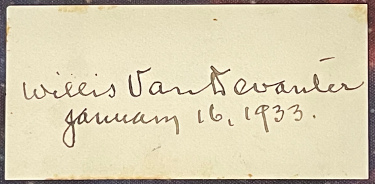 Willis Van Devanter
January 16, 1933.